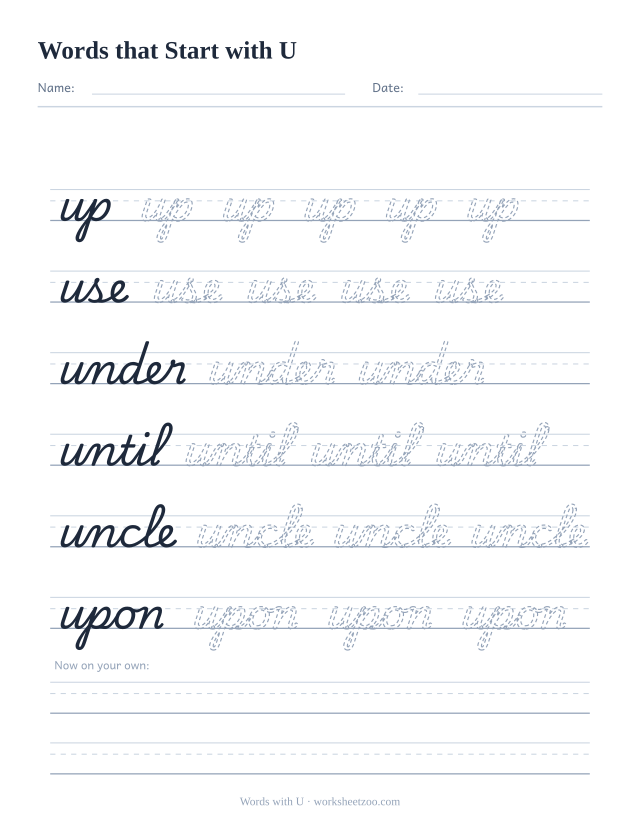 Words that Start with U
Name: Date:
up up up up up up
use use use use use
under under under
until until until until
uncle uncle uncle uncle
upon upon upon upon
Now on your own:
Words with U · worksheetzoo.com